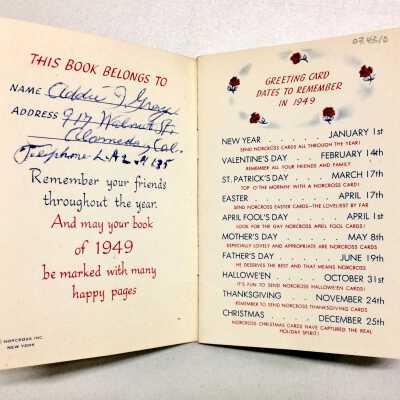 THIS BOOK BELONGS TO
NAME Addie J. Gray
ADDRESS 917 Walnut St.
Alameda, Cal.
Telephone LA 2
Remember your friends
throughout the year.
And may your book
of 1949
be marked with many
happy pages
NORCROSS INC.
NEW YORK
GREETING CARD
DATES TO REMEMBER
IN 1949
NEW YEAR . . . . . JANUARY 1st
SEND NORCROSS CARDS ALL THROUGH THE YEAR!
VALENTINE'S DAY . . FEBRUARY 14th
REMEMBER ALL YOUR FRIENDS AND FAMILY
ST. PATRICK'S DAY . . . MARCH 17th
TOP O'THE MORNIN' WITH A NORCROSS CARD!
EASTER . . . . . APRIL 17th
SEND NORCROSS EASTER CARDS–THE LOVELIEST BY FAR
APRIL FOOL'S DAY . . . APRIL 1st
LOOK FOR THE GAY NORCROSS APRIL FOOL CARDS!
MOTHER'S DAY . . . . MAY 8th
ESPECIALLY LOVELY AND APPROPRIATE ARE NORCROSS CARDS
FATHER'S DAY . . . . JUNE 19th
HE DESERVES THE BEST AND THAT MEANS NORCROSS
HALLOWE'EN . . . OCTOBER 31st
IT'S FUN TO SEND NORCROSS HALLOWE'EN CARDS!
THANKSGIVING . . NOVEMBER 24th
REMEMBER TO SEND NORCROSS THANKSGIVING CARDS
CHRISTMAS . . . DECEMBER 25th
NORCROSS CHRISTMAS CARDS HAVE CAPTURED THE REAL
HOLIDAY SPIRIT!